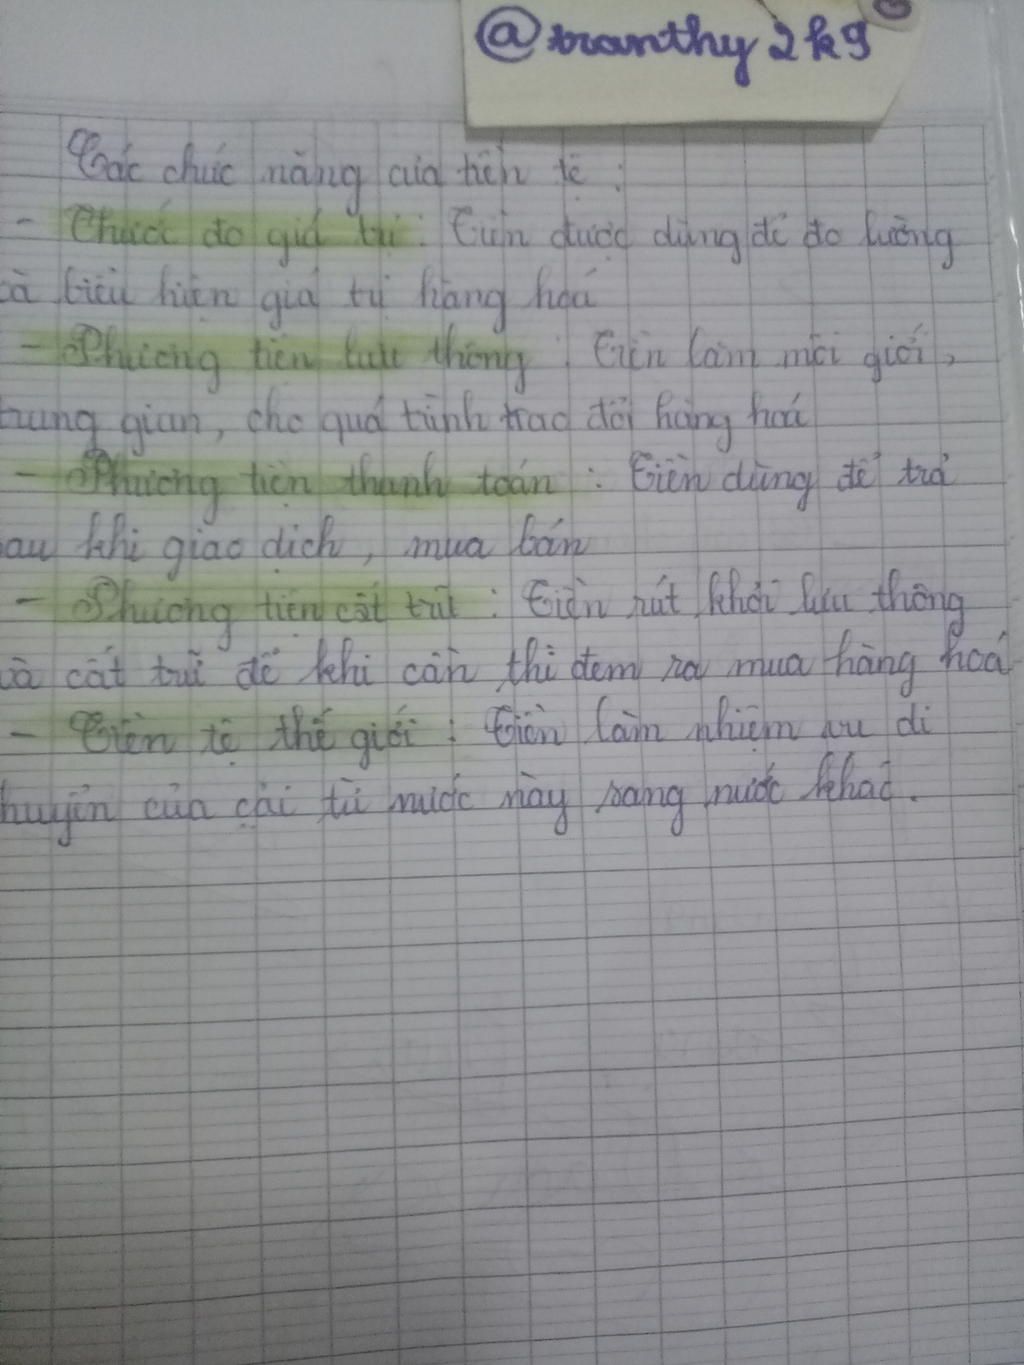 @tranthy2k9
Các chức năng của tiền tệ :
- Thước đo giá trị : Tiền được dùng để đo lường
và biểu hiện giá trị hàng hoá
- Phương tiện lưu thông : Tiền làm môi giới,
trung gian, cho quá trình trao đổi hàng hoá
- Phương tiện thanh toán : Tiền dùng để trả
sau khi giao dịch, mua bán
- Phương tiện cất trữ : Tiền rút khỏi lưu thông
và cất trữ để khi cần thì đem ra mua hàng hoá
- Tiền tệ thế giới : Tiền làm nhiệm vụ di
chuyển của cải từ nước này sang nước khác.